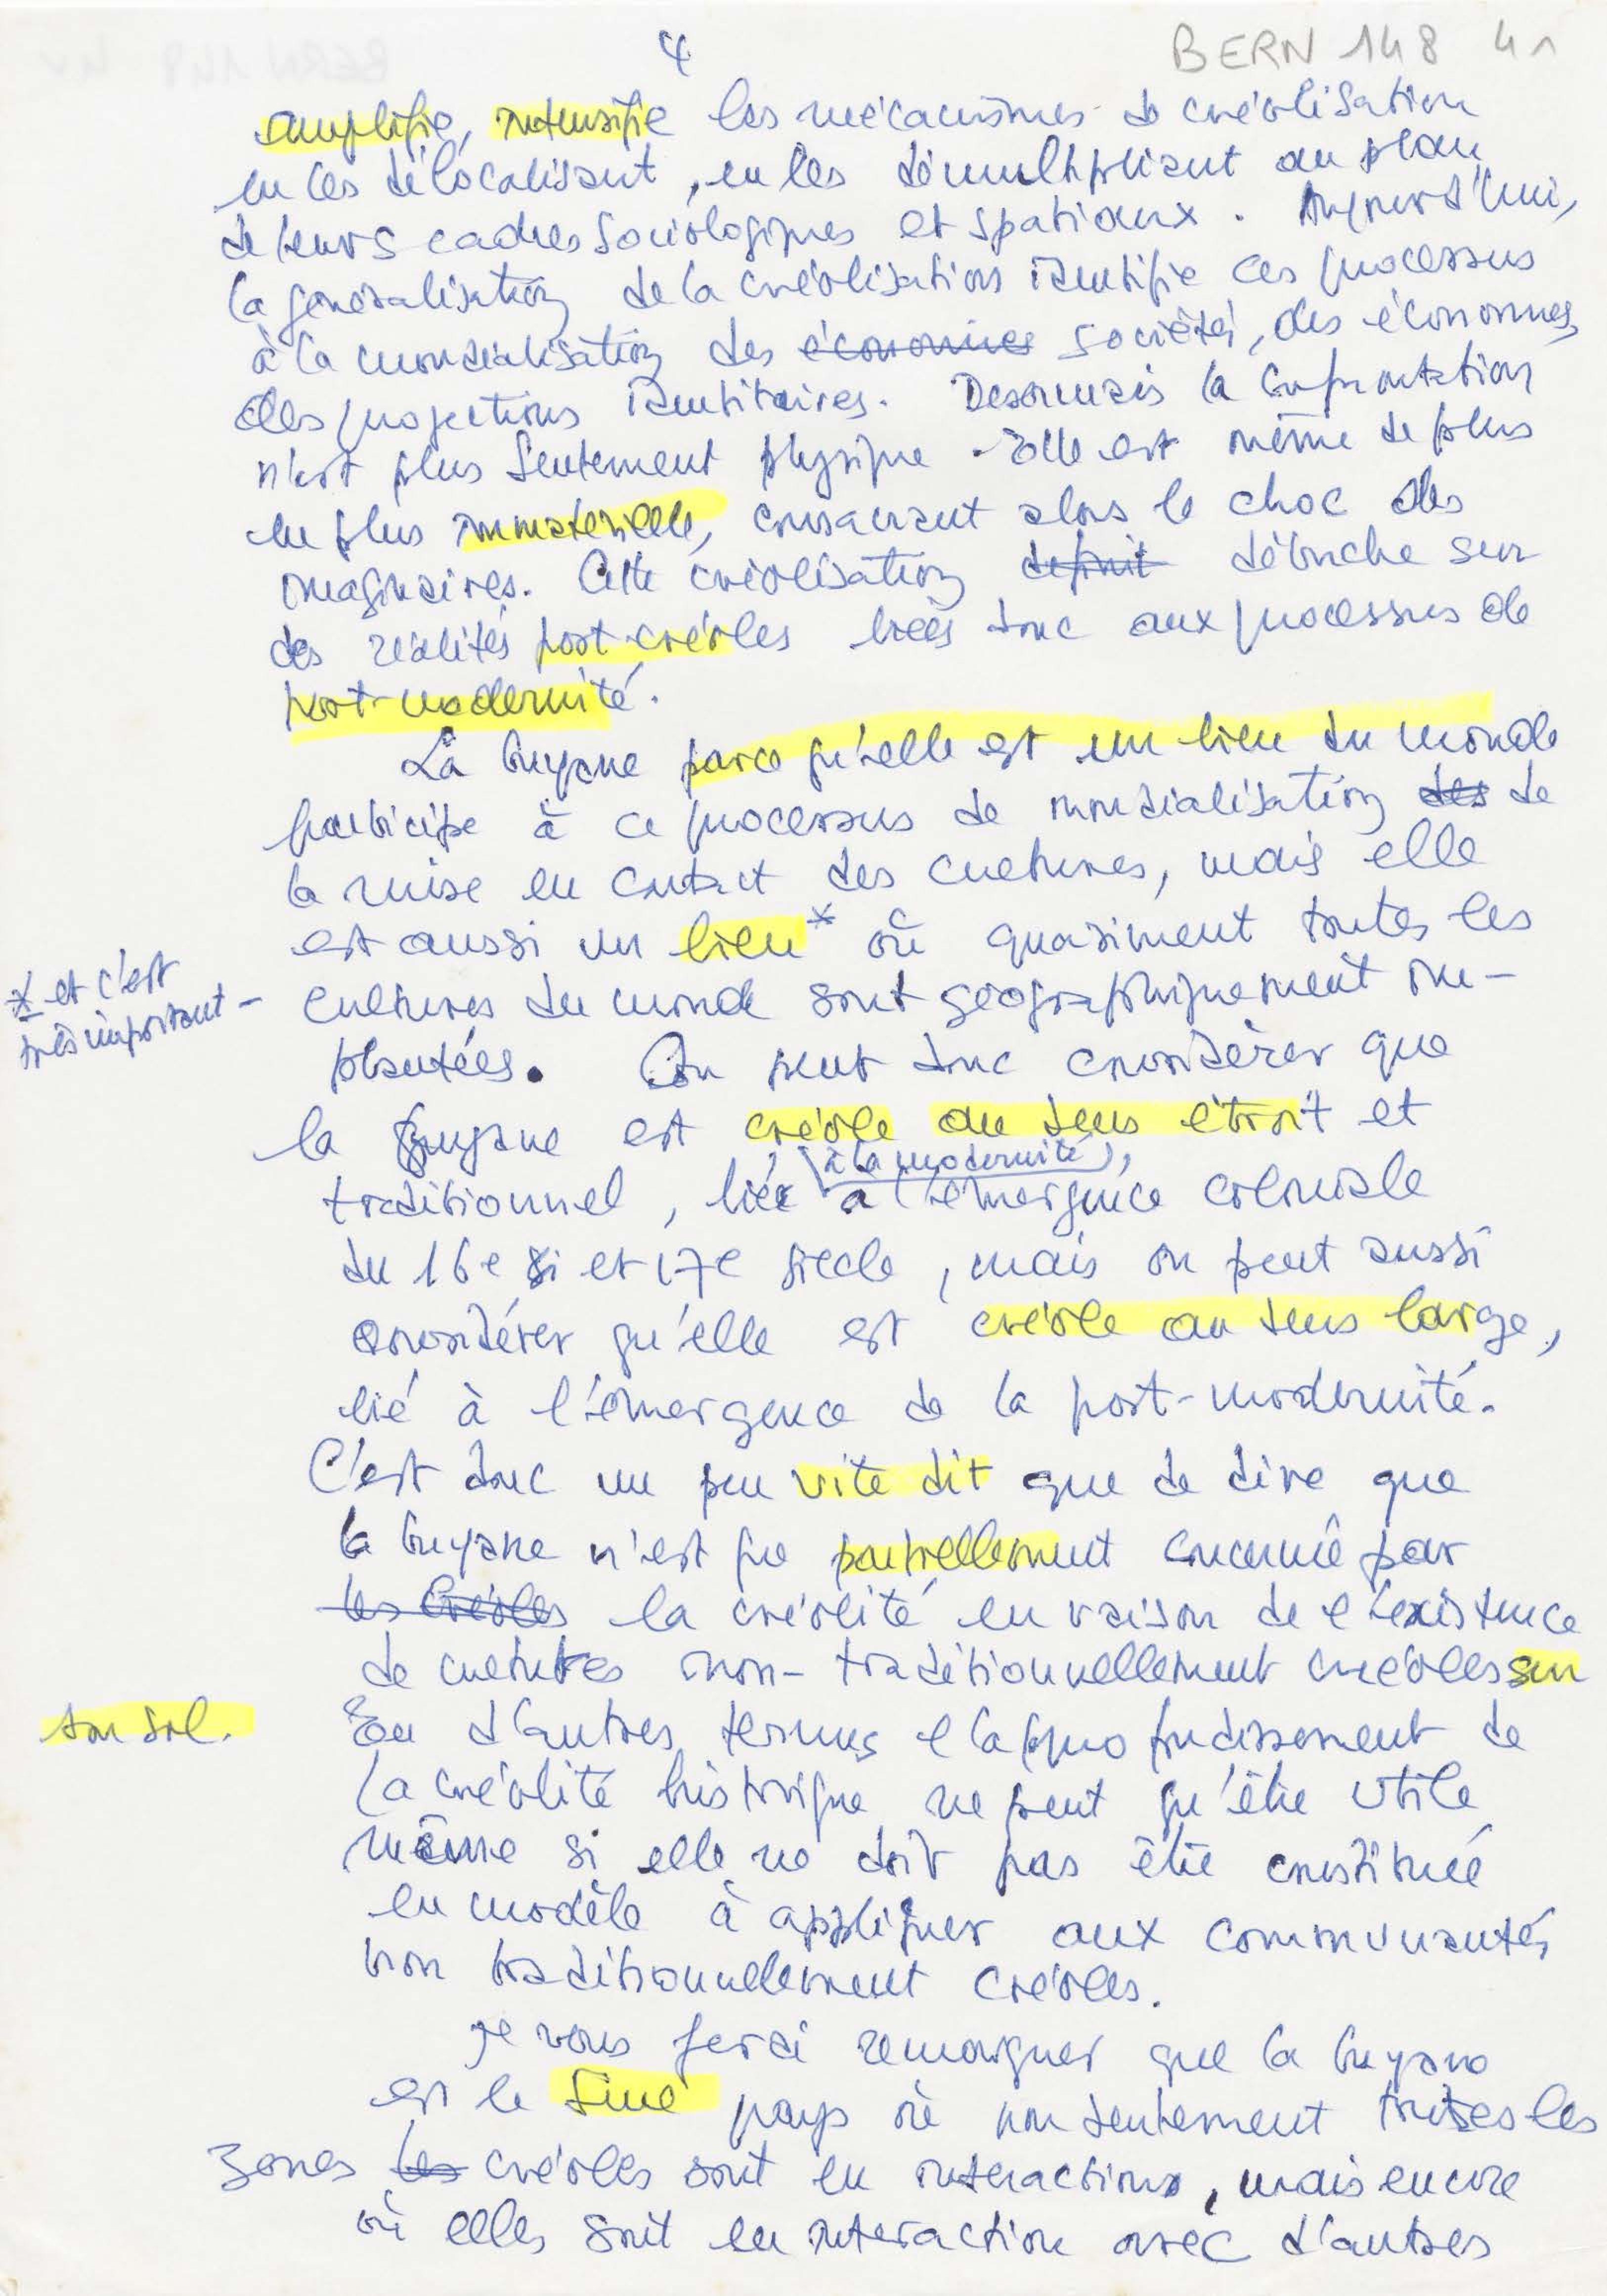 4
BERN 148 4r
amplifie, intensifie les mécanismes de créolisation
en les délocalisant, en les démultipliant au plan
de leurs cadres sociologiques et spatiaux. Aujourd'hui,
la généralisation de la créolisation identifie ces processus
à la mondialisation des économies sociétés, des économies,
des projections identitaires. Désormais la confrontation
n'est plus seulement physique. Elle est même de plus
en plus immatérielle, consacrant alors le choc des
imaginaires. Cette créolisation définit débouche sur
des réalités post-créoles liées donc aux processus de
post-modernité.
La Guyane parce qu'elle est un lieu du monde
participe à ce processus de mondialisation des de
la mise en contact des cultures, mais elle
est aussi un lieu* où quasiment toutes les
* et c'est
très important -
cultures du monde sont géographiquement im-
plantées. On peut donc considérer que
la Guyane est créole au sens étroit et
à la modernité),
traditionnel, liée à l'émergence coloniale
du 16e si et 17e siècle, mais on peut aussi
considérer qu'elle est créole au sens large,
lié à l'émergence de la post-modernité.
C'est donc un peu vite dit que de dire que
la Guyane n'est que partiellement concernée par
les Créoles la créolité en raison de l'existence
de cultures non-traditionnellement créoles sur
son sol. En d'autres termes l'approfondissement de
la créolité historique ne peut qu'être utile
même si elle ne doit pas être constituée
en modèle à appliquer aux communautés
non traditionnellement créoles.
Je vous ferai remarquer que la Guyane
est le seul pays où non seulement toutes les
zones les créoles sont en interactions, mais encore
où elles sont en interaction avec d'autres